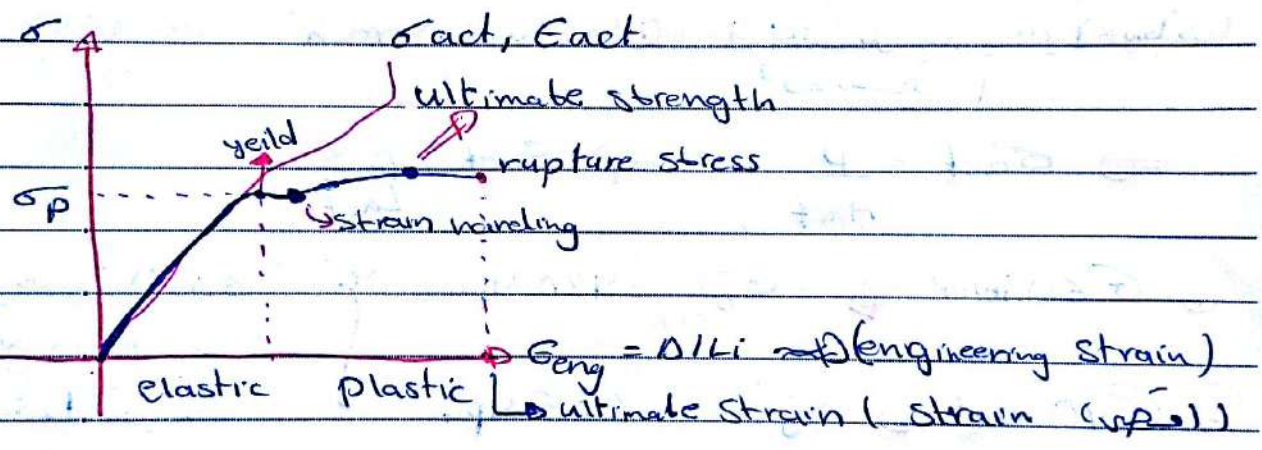 σ
σact, Eact
ultimate strength
yeild
rupture stress
σp
strain harding
Eeng = Δ/Li (engineering strain)
elastic plastic
ultimate strain ( strain